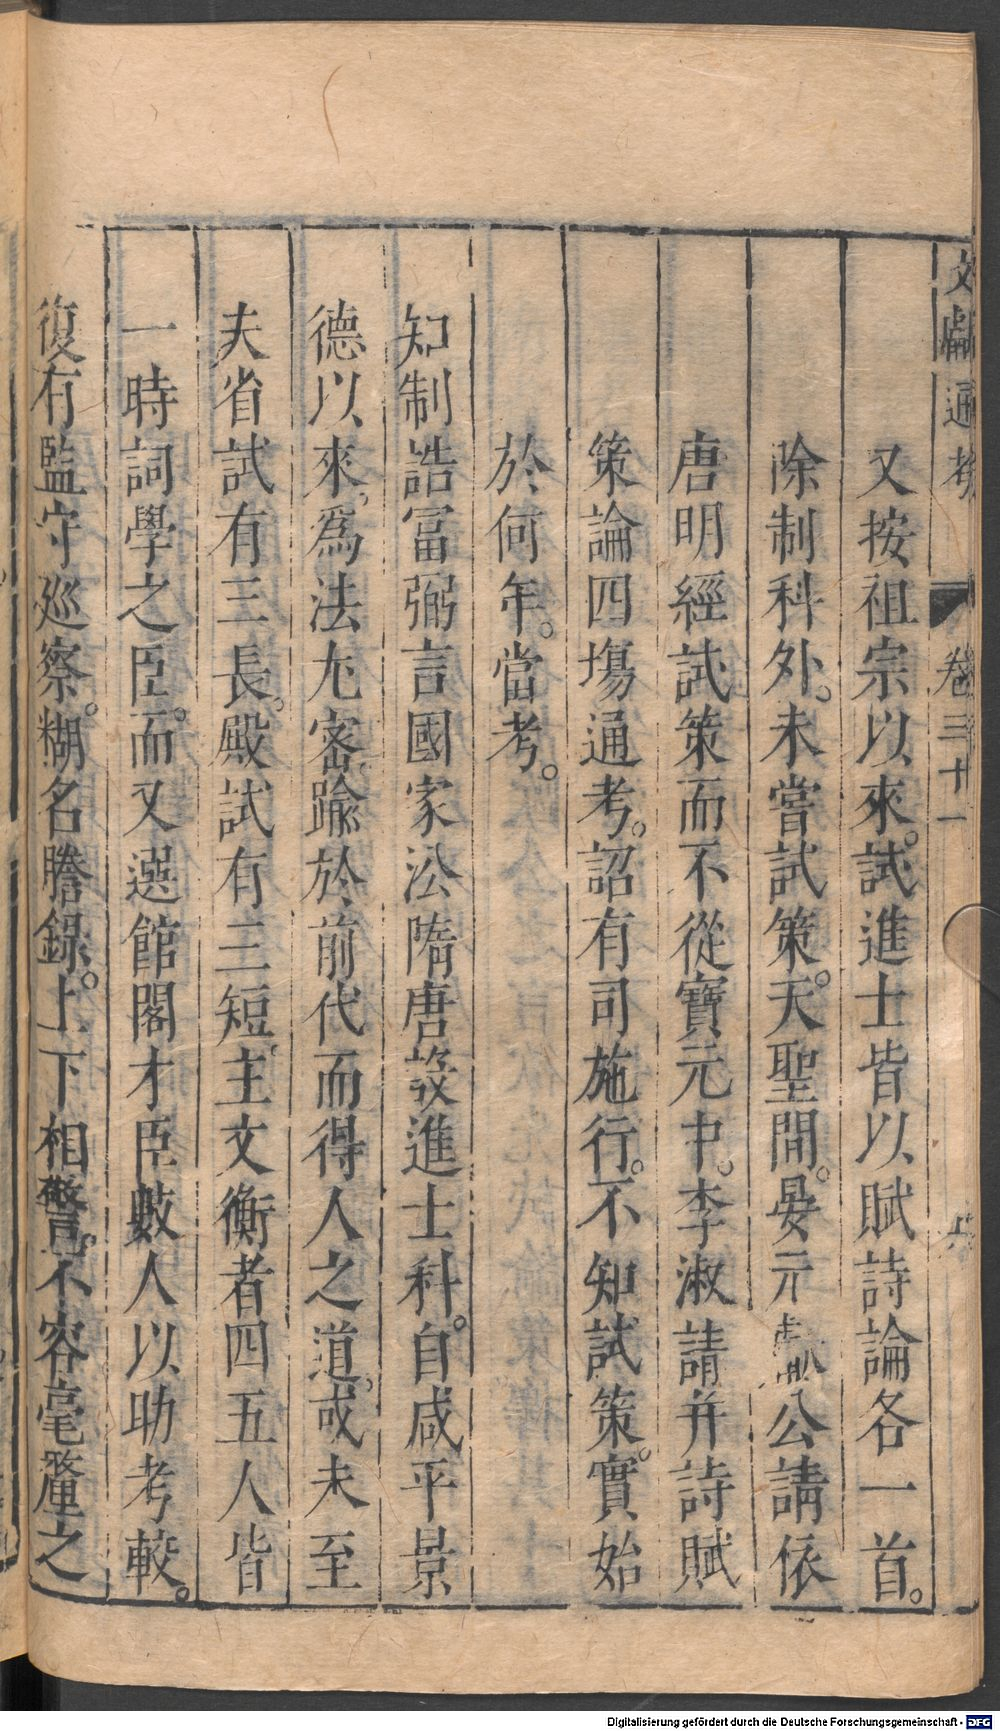 文獻通考 卷三十一 六
又按祖宗以來。試進士皆以賦詩論各一首。
除制科外。未嘗試策。天聖間。晏元獻公請依
唐明經試策而不從寶元中。李淑請幷詩賦
策論四塲通考。詔有司施行。不知試策。實始
於何年。當考。
知制誥冨弼言國家㳂隋唐設進士科。自咸平景
德以來。爲法尢宻踰於前代而得人之道。或未至
夫省試有三長。殿試有三短。主文衡者四五人皆
一時詞學之臣。而又選館閣才臣數人以助考較。
復有監守廵察。糊名謄錄。上下相警。不容毫釐之
Digitalisierung gefördert durch die Deutsche Forschungsgemeinschaft - DFG